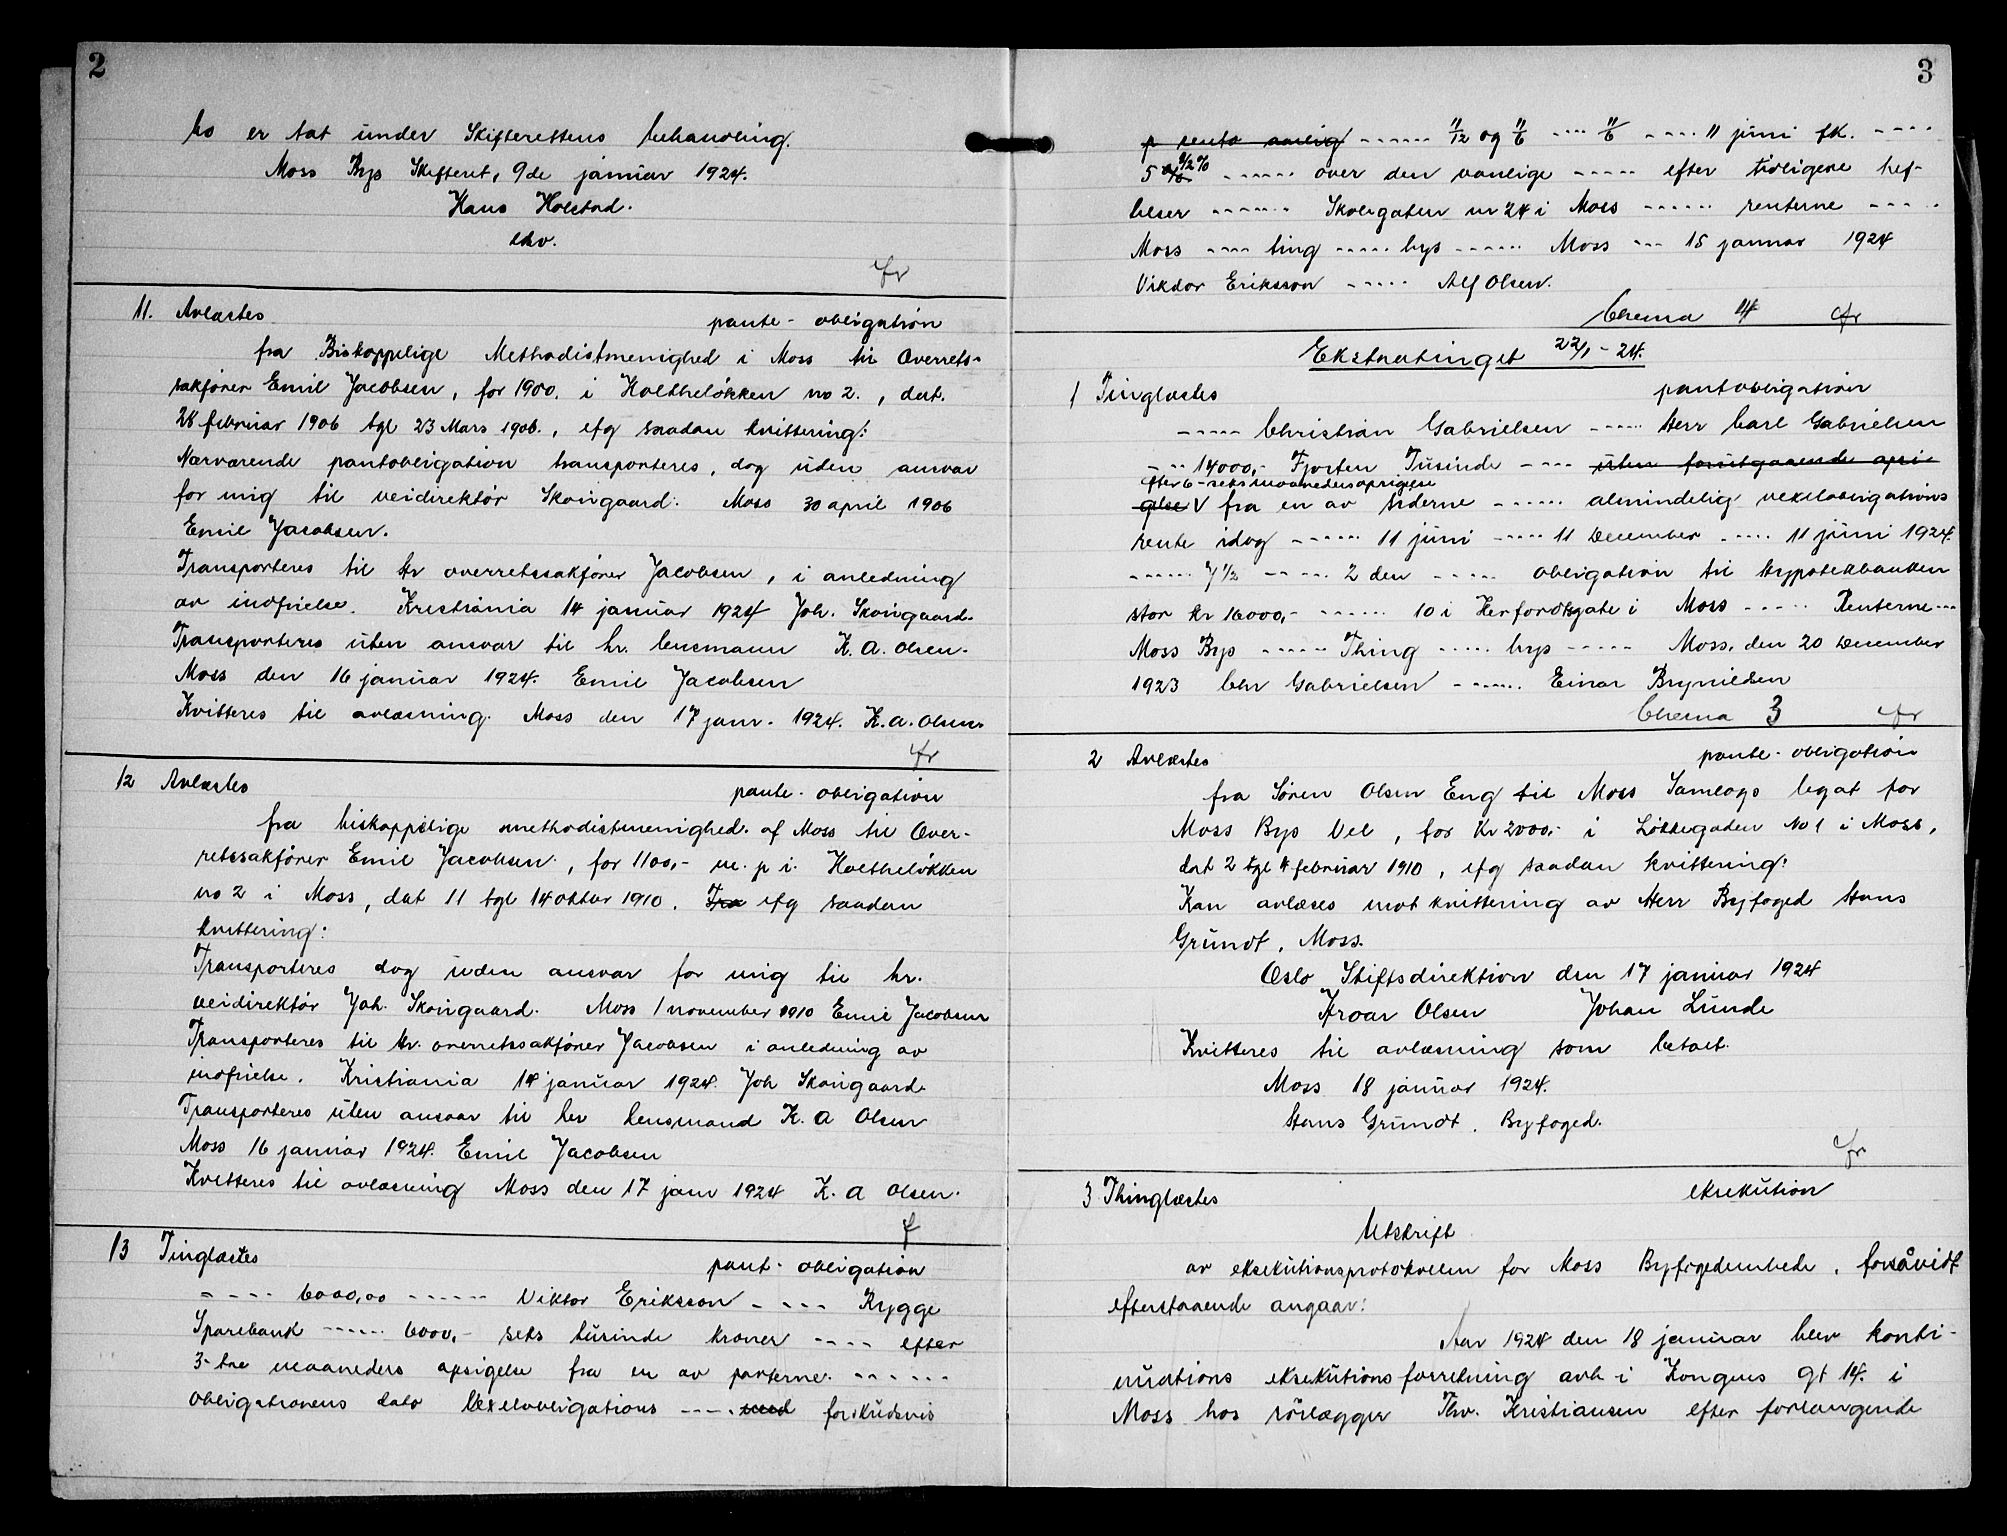 2
bo er tat under Skifterettens behandling.
Moss Bys Skifteret, 9de januar 1924.
Hans Holstad.
cfr
11. Avlæstes pante - obligation
fra Biskoppelige Methodistmenighed i Moss til Overrets-
sakfører Emil Jacobsen, for 1900. i Holtheløkken no 2. , dat.
28 februar 1906 tgl 23 Mars 1906. , efg saadan kvittering:
Nærværende pantobligation transporteres, dog uden ansvar
for mig til veidirektør Skougaard. Moss 30 april 1906
Emil Jacobsen.
Transporteres til hr overretssakfører Jacobsen, i anledning
av indfrielse. Kristiania 14 januar 1924 Joh. Skougaard.
Transporteres uten ansvar til hr. lensmann K. A. Olsen.
Moss den 16 januar 1924. Emil Jacobsen
Kvitteres til avlæsning. Moss den 17 jan. 1924. K. A. Olsen.
cfr
12 Avlæstes pante - obligation
fra biskoppelige methodistmenighed. af Moss til Over-
retssakfører Emil Jacobsen., for 1100,- m. p i. Holtheløkken
no 2 i Moss, dat 11 tgl 14 oktbr 1910. Tra efg saadan
kvittering:
Transporteres dog uden ansvar for mig til hr.
veidirektør Joh. Skougaard. Moss 1 november 1910 Emil Jacobsen
Transporteres til hr. overretssakfører Jacobsen i anledning av
indfrielse. Kristiania 14 januar 1924. Joh Skougaard.
Transporteres uten ansvar til hr lensmand K. A Olsen
Moss 16 januar 1924. Emil Jacobsen
Kvitteres til avlæsning Moss den 17 jan 1924 K. A Olsen.
13 Tinglæstes pant - obligation
- - - - 6000,00 - - - - - - Viktor Eriksson - - - - Rygge
Sparebank - - - - - - 6000,- seks tusinde kroner - - - - efter
3- tre maaneders opsigelse fra en av parterne. - - - - - -
obligationens dato Vexelobligations - - - - med forskudsvis
3
p rente aarlig - - - - - - 11/12 og 11/6 - - - - 11/6 - - - - 11 juni fk. - - - -
5 1/2 % - - - - - - over den vanlige - - - - - efter tidligere hef-
telser - - - - - - Skolegaten nr 24 i Moss - - - - - - renterne - - - - -
Moss - - - - ting - - - - - bys - - - - - - Moss - - - 15 januar 1924
Viktor Eriksson - - - - - Alf Olsen.
Chema 14 cfr
Ekstratinget 22/1 - 24.
1 Tinglæstes pantobligation
- - - - - Christian Gabrielsen - - - - - Herr Carl Gabrielsen
- - - 14000,- Fjorten Tusinde - - - - uten forutgaaende opsi-
efter 6 - seks maaneders opsigelse
gelse V fra en av siderne - - - - - - almindelig vexelobligations
rente idag - - - - - - 11 juni - - - - - 11 December - - - - - 11 juni 1924.
- - - - - - 7 1/2 - - - - - 2 den - - - - - obligation til Hypotekbanken
stor kr 16000,- - - - - - - 10 i Herfordtsgate i Moss - - - - - Renterne - - -
Moss Bys - - - - - - Thing - - - - - bys - - - - - Moss. den 20 December
1923 Chr Gabrielsen - - - - - - Einar Brynildsen
Chema 3 cfr
2 Avlæstes pante - obligation
fra Søren Olsen Eng til Moss Samlags legat for
Moss Bys Vel , for Kr 2000,- i Løkkegaten No 1 i Moss,
dat 2 tgl 4 februar 1910 , efg saadan kvittering:
Kan avlæses mot kvittering av Herr Byfoged Hans
Grundt, Moss.
Oslo Stiftsdirektion den 17 januar 1924
Hroar Olsen Johan Lunde
Kvitteres til avlæsning som betalt.
Moss 18 januar 1924.
Hans Grundt . Byfoged.
cfr
3 Thinglæstes eksekution
Utskrift
av eksekutionsprotokollen for Moss Byfogedembede , forsåvidt
efterstaaende angaar:
Aar 1924 den 18 januar blev konti-
nuations eksekutionsforretning avh i Kongens gt 14. i
Moss hos rørlægger Thv. Kristiansen efter forlangende